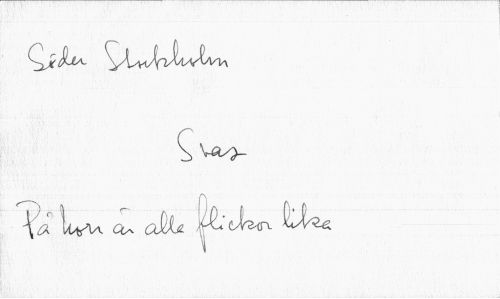 Söder Stockholm
Svar
På horn är alla flickor lika